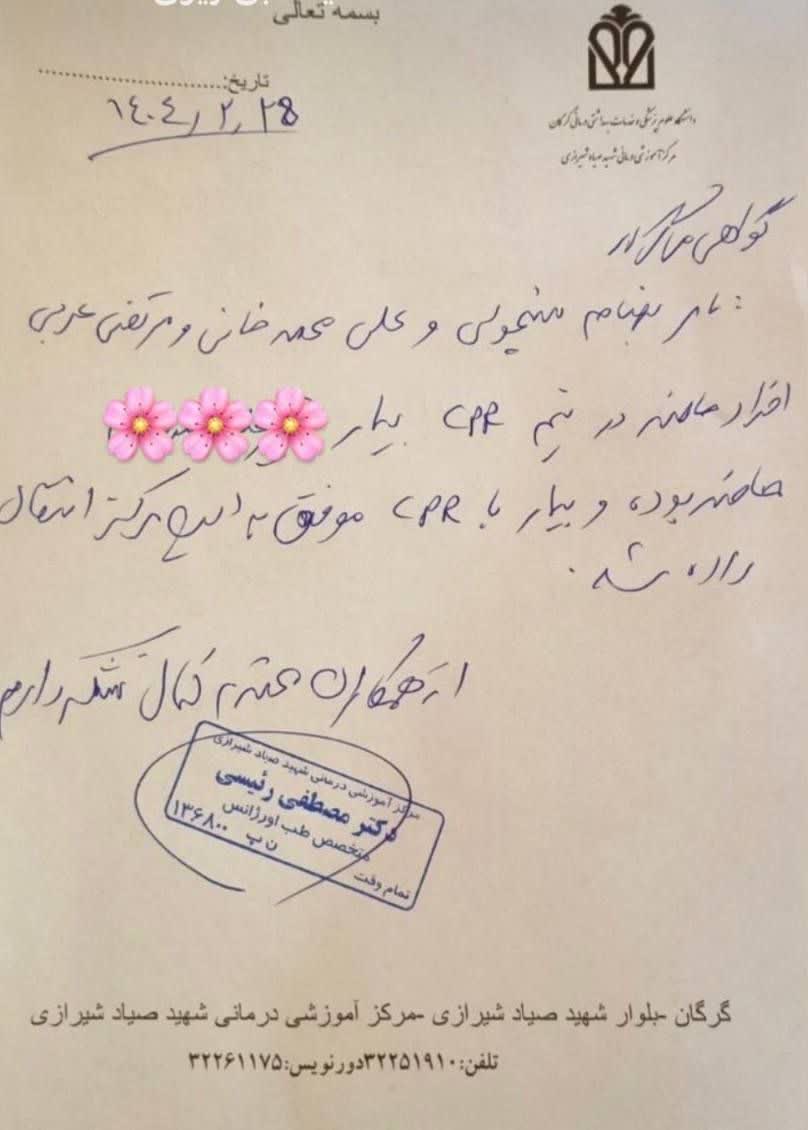 بسمه تعالی
دانشگاه علوم پزشکی و خدمات بهداشتی درمانی گرگان
مرکز آموزشی درمانی شهید صیاد شیرازی
تاریخ:
۱۴۰۴/۲/۲۸
گواهی
و علی محمد خانی و مرتضی عربی
افراد حاضر در تیم CPR بیمار
حاضر بوده و بیمار با CPR موفق به این مرکز انتقال
داده شد.
از همکاران محترم کمال تشکر دارم
مرکز آموزشی درمانی شهید صیاد شیرازی
دکتر مصطفی رئیسی
متخصص طب اورژانس
ن پ ۱۳۶۸۰۰
تمام وقت
گرگان -بلوار شهید صیاد شیرازی -مرکز آموزشی درمانی شهید صیاد شیرازی
تلفن:۳۲۲۵۱۹۱۰دورنویس:۳۲۲۶۱۱۷۵